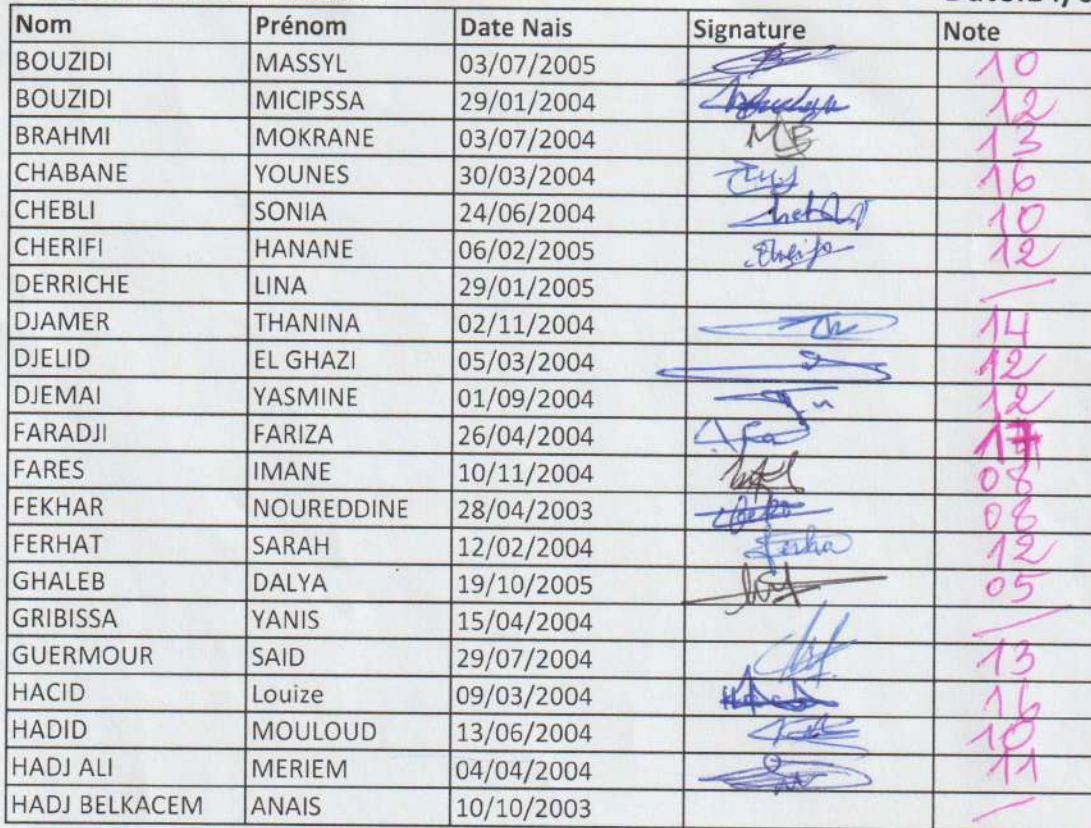 Nom Prénom Date Nais Signature Note
BOUZIDI MASSYL 03/07/2005 10
BOUZIDI MICIPSSA 29/01/2004 12
BRAHMI MOKRANE 03/07/2004 13
CHABANE YOUNES 30/03/2004 16
CHEBLI SONIA 24/06/2004 10
CHERIFI HANANE 06/02/2005 12
DERRICHE LINA 29/01/2005 /
DJAMER THANINA 02/11/2004 14
DJELID EL GHAZI 05/03/2004 12
DJEMAI YASMINE 01/09/2004 12
FARADJI FARIZA 26/04/2004
FARES IMANE 10/11/2004 08
FEKHAR NOUREDDINE 28/04/2003 08
FERHAT SARAH 12/02/2004 12
GHALEB DALYA 19/10/2005 05
GRIBISSA YANIS 15/04/2004 /
GUERMOUR SAID 29/07/2004 13
HACID Louize 09/03/2004 16
HADID MOULOUD 13/06/2004 10
HADJ ALI MERIEM 04/04/2004 11
HADJ BELKACEM ANAIS 10/10/2003 /